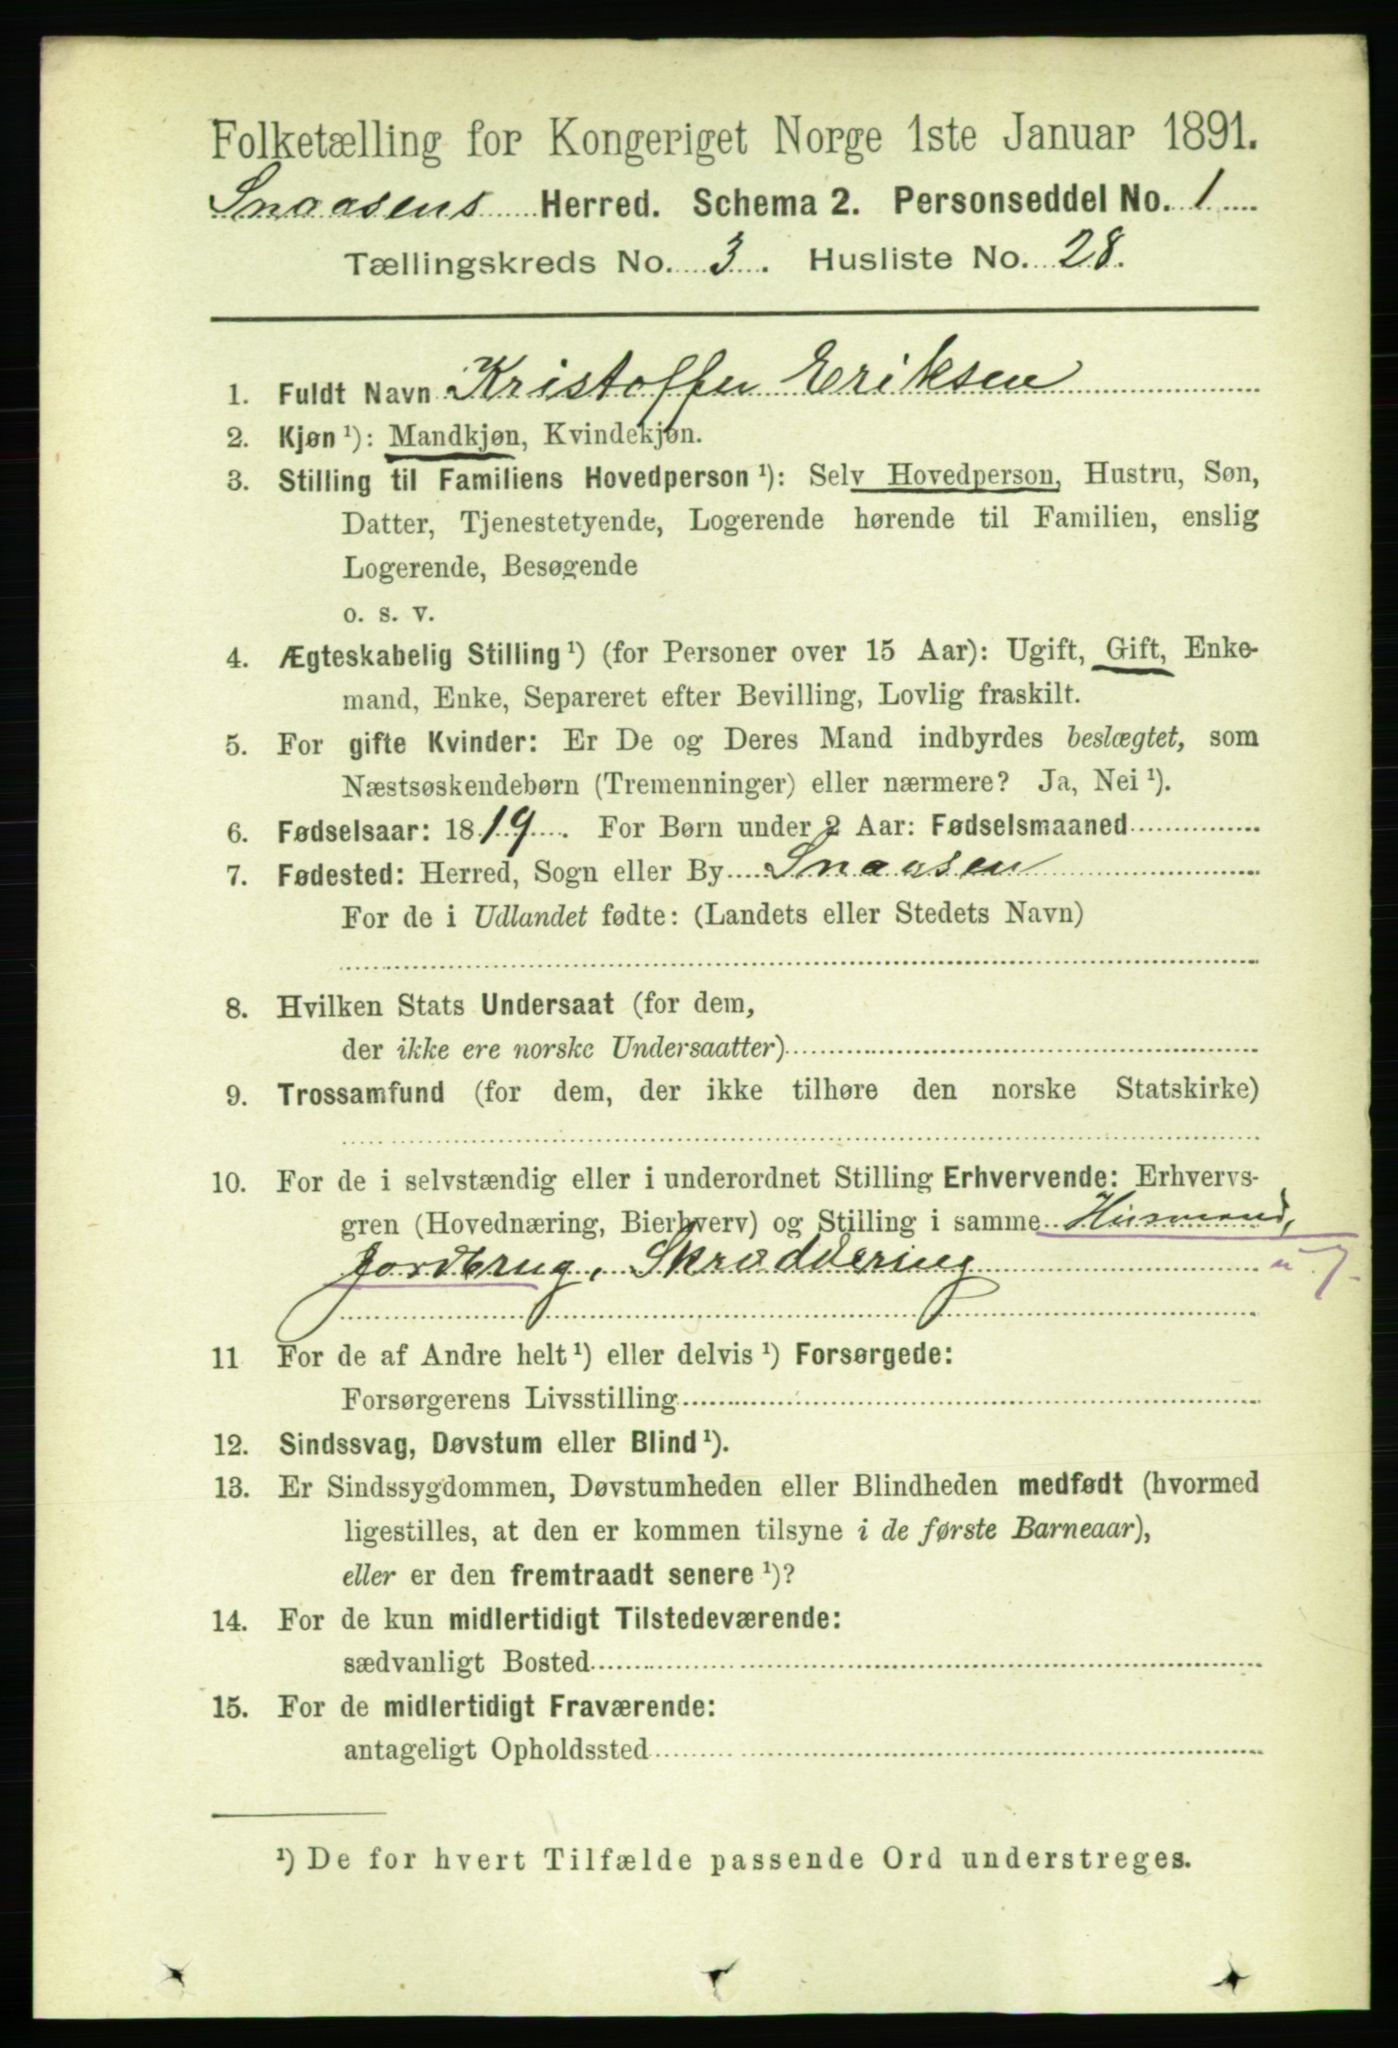 Folketælling for Kongeriget Norge 1ste Januar 1891.
Snaasens Herred. Schema 2. Personseddel No. 1
Tællingskreds No. 3. Husliste No. 28.
1. Fuldt Navn Kristoffer Eriksen
2. Kjøn ¹): Mandkjøn, Kvindekjøn.
3. Stilling til Familiens Hovedperson ¹): Selv Hovedperson, Hustru, Søn,
Datter, Tjenestetyende, Logerende hørende til Familien, enslig
Logerende, Besøgende
o. s. v.
4. Ægteskabelig Stilling ¹) (for Personer over 15 Aar): Ugift, Gift, Enke-
mand, Enke, Separeret efter Bevilling, Lovlig fraskilt.
5. For gifte Kvinder: Er De og Deres Mand indbyrdes beslægtet, som
Næstsøskendebørn (Tremenninger) eller nærmere? Ja, Nei ¹).
6. Fødselsaar: 1819. For Børn under 2 Aar: Fødselsmaaned
7. Fødested: Herred, Sogn eller By Snaasen
For de i Udlandet fødte: (Landets eller Stedets Navn)
8. Hvilken Stats Undersaat (for dem,
der ikke ere norske Undersaatter)
9. Trossamfund (for dem, der ikke tilhøre den norske Statskirke)
10. For de i selvstændig eller i underordnet Stilling Erhvervende: Erhvervs-
gren (Hovednæring, Bierhverv) og Stilling i samme Husmand,
Jordbrug, Skræddering
11 For de af Andre helt ¹) eller delvis ¹) Forsørgede:
Forsørgerens Livsstilling
12. Sindssvag, Døvstum eller Blind ¹).
13. Er Sindssygdommen, Døvstumheden eller Blindheden medfødt (hvormed
ligestilles, at den er kommen tilsyne i de første Barneaar),
eller er den fremtraadt senere ¹)?
14. For de kun midlertidigt Tilstedeværende:
sædvanligt Bosted
15. For de midlertidigt Fraværende:
antageligt Opholdssted
¹) De for hvert Tilfælde passende Ord understreges.